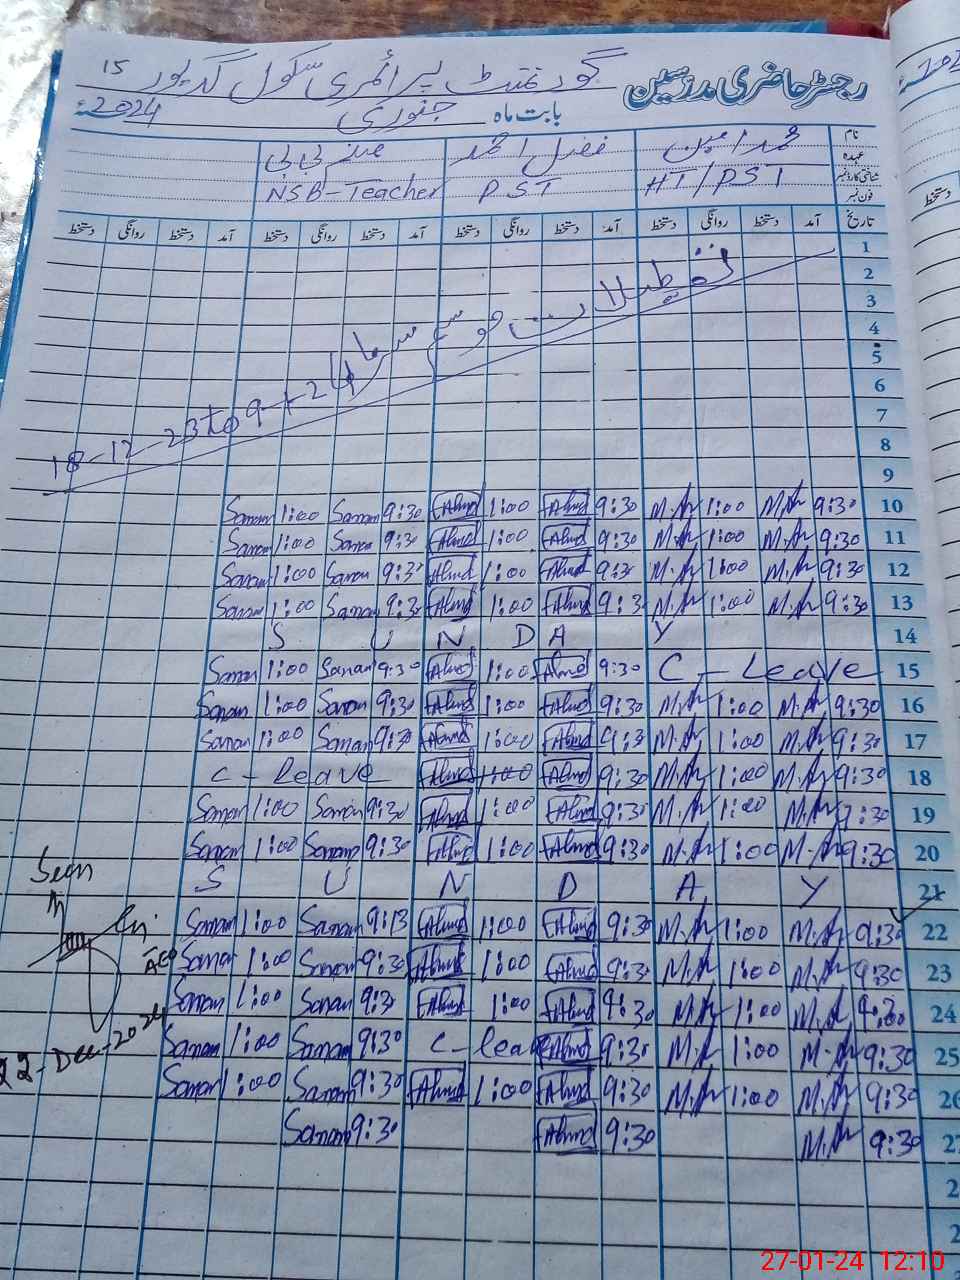 رجسٹر حاضری مدرسین گورنمنٹ پرائمری سکول 15
بابت ماہ جنوری 2024ء
نام محمد امین فضل احمد صنم بی بی
عہدہ HT/PST PST NSB-Teacher
شناختی کارڈ نمبر
فون نمبر
تاریخ آمد دستخط روانگی دستخط آمد دستخط روانگی دستخط آمد دستخط روانگی دستخط آمد دستخط روانگی دستخط
1
2
3
4
5
6
7
8
9
تعطیلات موسم سرما 18-12-23 to 9-1-24
10 9:30 M.Am 1:00 M.Am 9:30 Ahmd 1:00 Ahmd 9:30 Sanam 1:00 Sanam
11 9:30 M.Am 1:00 M.Am 9:30 Ahmd 1:00 Ahmd 9:30 Sanam 1:00 Sanam
12 9:30 M.Am 1:00 M.Am 9:3 Ahmd 1:00 Ahmd 9:3 Sanam 1:00 Sanam
13 9:30 M.Am 1:00 M.Am 9:3 Ahmd 1:00 Ahmd 9:3 Sanam 1:00 Sanam
14 S U N D A Y
15 C-leave 9:30 Ahmd 1:00 Ahmd 9:30 Sanam 1:00 Sanam
16 9:30 M.Am 1:00 M.Am 9:30 Ahmd 1:00 Ahmd 9:30 Sanam 1:00 Sanam
17 9:30 M.Am 1:00 M.Am 9:3 Ahmd 1:00 Ahmd 9:30 Sanam 1:00 Sanam
18 9:30 M.Am 1:00 M.Am 9:30 Ahmd 1:00 Ahmd C-leave
19 9:30 M.Am 1:00 M.Am 9:30 Ahmd 1:00 Ahmd 9:30 Sanam 1:00 Sanam
20 9:30 M.Am 1:00 M.Am 9:30 Ahmd 1:00 Ahmd 9:30 Sanam 1:00 Sanam
21 S U N D A Y
22 9:30 M.Am 1:00 M.Am 9:30 Ahmd 1:00 Ahmd 9:13 Sanam 1:00 Sanam
23 9:30 M.Am 1:00 M.Am 9:30 Ahmd 1:00 Ahmd 9:30 Sanam 1:00 Sanam
24 9:30 M.Am 1:00 M.Am 9:30 Ahmd 1:00 Ahmd 9:3 Sanam 1:00 Sanam
25 9:30 M.Am 1:00 M.Am 9:30 Ahmd C-leave 9:30 Sanam 1:00 Sanam
26 9:30 M.Am 1:00 M.Am 9:30 Ahmd 1:00 Ahmd 9:30 Sanam 1:00 Sanam
27 9:30 M.Am 9:30 Ahmd 9:30 Sanam
Seen
22-Dec-2024
27-01-24 12:10